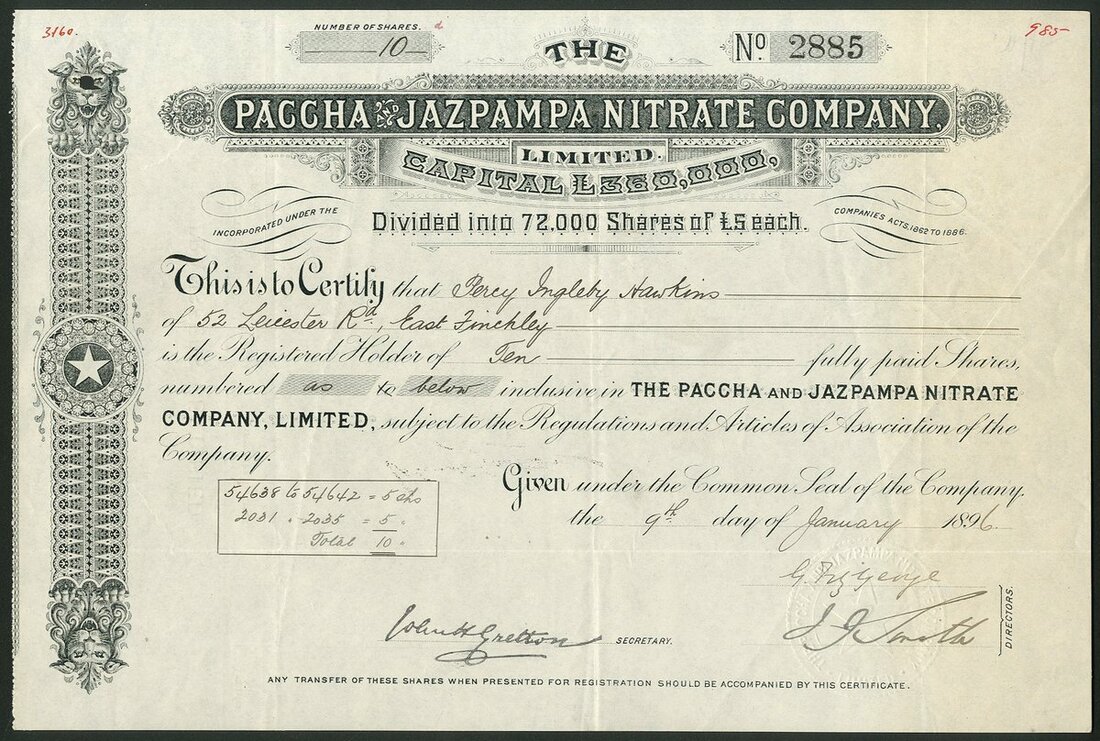 3160.
NUMBER OF SHARES.
10
THE
No 2885
985
PACCHA AND JAZPAMPA NITRATE COMPANY,
LIMITED.
CAPITAL £360,000,
INCORPORATED UNDER THE
Divided into 72.000 Shares of £5 each.
COMPANIES ACTS, 1862 TO 1886.
This is to Certify that Percy Ingleby Hawkins
of 52 Leicester Rd., East Finchley
is the Registered Holder of Ten fully paid Shares,
numbered as to below inclusive in THE PACCHA AND JAZPAMPA NITRATE
COMPANY, LIMITED, subject to the Regulations and Articles of Association of the
Company.
Given under the Common Seal of the Company,
the 9th day of January 1896.
54638 to 54642 = 5 shs
2031 " 2035 = 5 "
Total 10 "
G. FitzGeorge
J. J. Smith
DIRECTORS.
John H Gretton SECRETARY.
ANY TRANSFER OF THESE SHARES WHEN PRESENTED FOR REGISTRATION SHOULD BE ACCOMPANIED BY THIS CERTIFICATE.